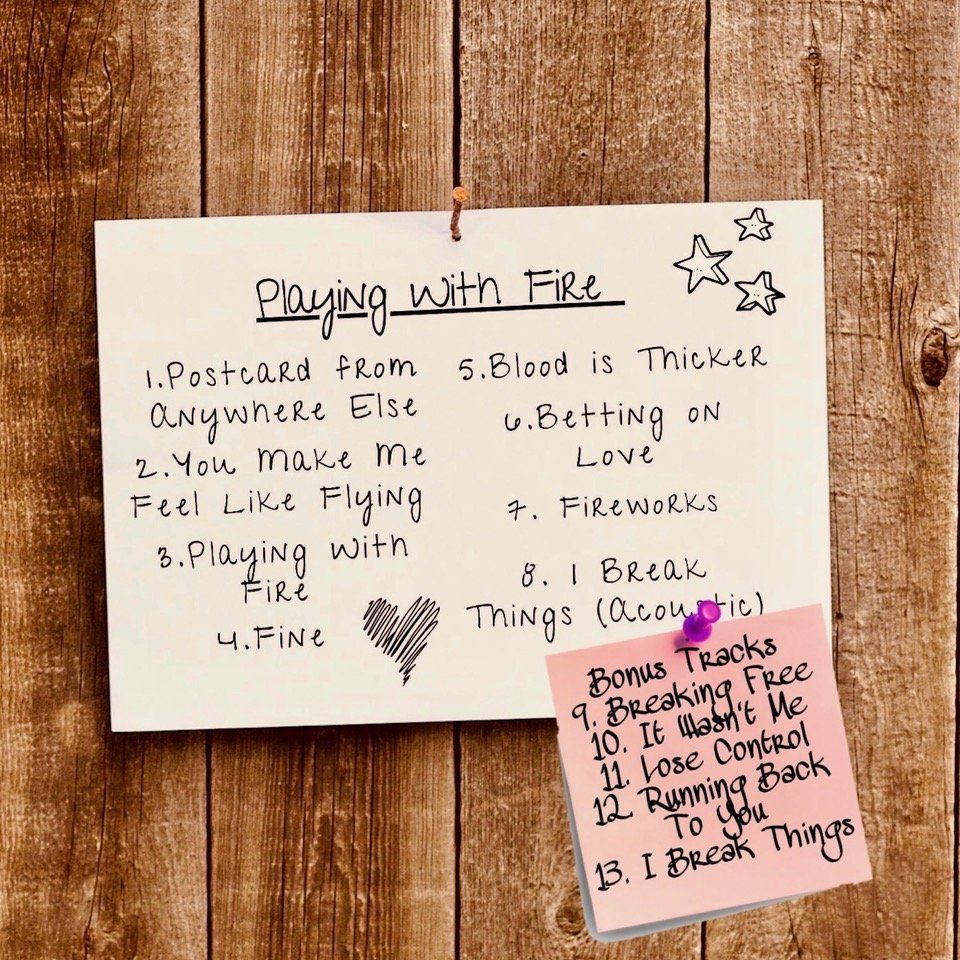 Playing with Fire
1. Postcard from
Anywhere Else
2. You Make Me
Feel Like Flying
3. Playing with
Fire
4. Fine
5. Blood is Thicker
6. Betting on
Love
7. Fireworks
8. I Break
Things (Acoustic)
Bonus Tracks
9. Breaking Free
10. It Wasn't Me
11. Lose Control
12. Running Back
To You
13. I Break Things